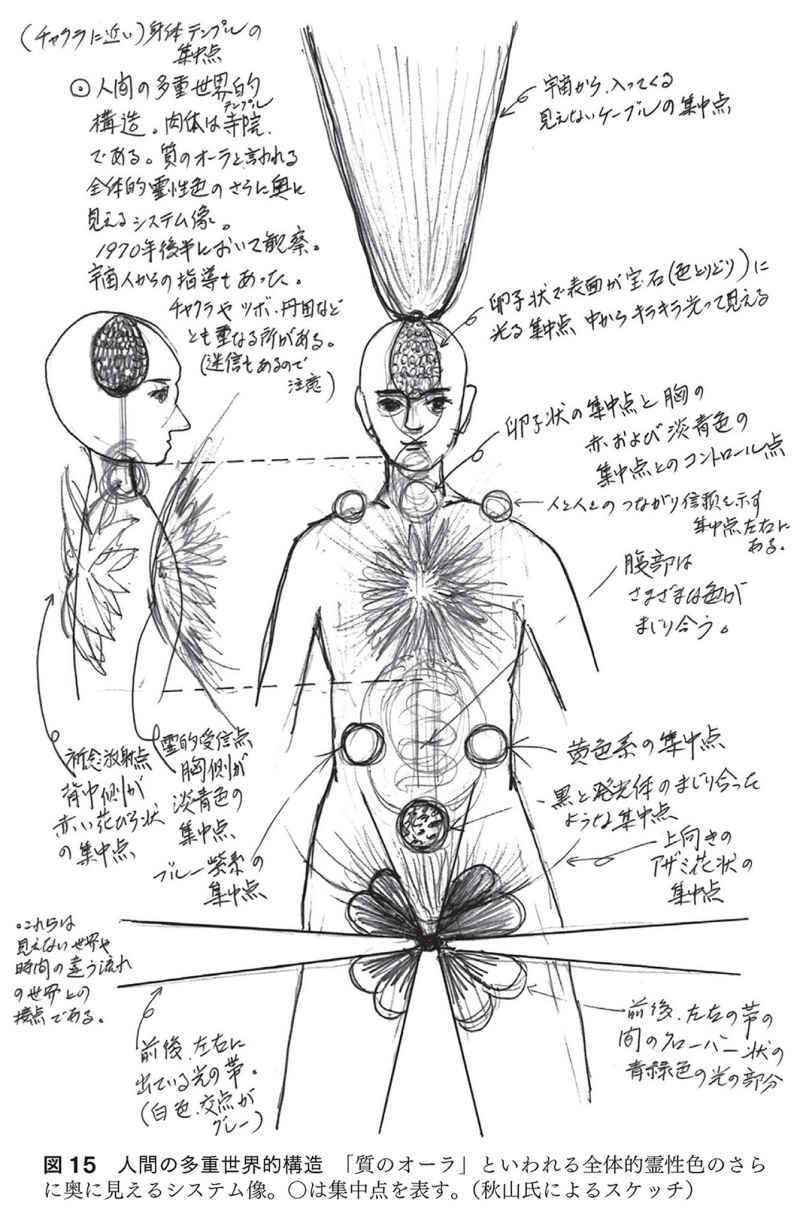 (チャクラに近い)身体テンプルの
集中点
◎人間の多重世界的
構造。肉体は寺院
テンプル
である。質のオーラと言われる
全体的霊性色のさらに奥に
見えるシステム像。
1970年後半において観察。
宇宙人からの指導もあった。
チャクラやツボ、丹田など
とも重なる所がある。
(迷信もあるので
注意)
宇宙から、入ってくる
見えないケーブルの集中点
卵子状で表面が宝石(色とりどり)に
光る集中点 中からキラキラ光って見える
卵子状の集中点と胸の
赤および淡青色の
集中点とのコントロール点
人と人とのつながり信頼を示す
集中点左右に
ある。
腹部は
さまざまな色が
まじり合う。
祈念放射点
背中側が
赤い花びら状
の集中点
霊的受信点
胸側が
淡青色の
集中点
ブルー紫系の
集中点
黄色系の集中点
黒と発光体のまじり合った
ような集中点
上向きの
アザミ花状の
集中点
・これらは
見えない世界や
時間の違う流れ
の世界との
接点である。
前後、左右に
出ている光の帯。
(白色、交点が
グレー)
前後、左右の帯の
間のクローバー状の
青緑色の光の部分
図15 人間の多重世界的構造 「質のオーラ」といわれる全体的霊性色のさら
に奥に見えるシステム像。○は集中点を表す。(秋山氏によるスケッチ)